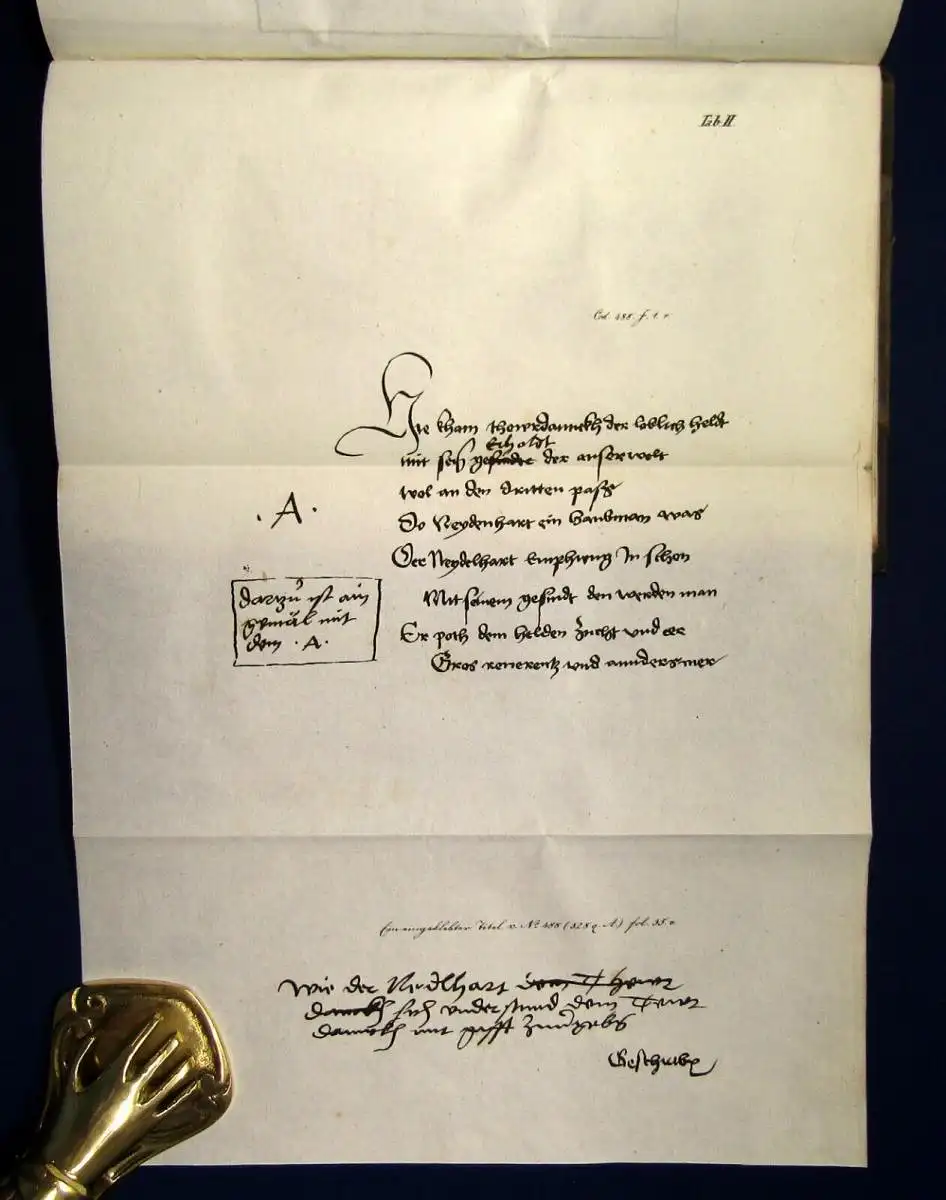 Tab. II.
Cod. 488. f. 1. r.
Hie kham thewrdannckh der loblich heldt
Erholdt
mit sein gesindt der ausserwelt
wol an den dritten pass
Do Neydenhart ein haubtman was
· A ·
Der Neydelhart Emphieng In schon
Mit seinem gesindt den werden man
Er poth dem helden zucht und eer
Gros reverentz und annders mer
darzu ist ain
gemäl mit
dem · A ·
Ein eingeklebter Titel v. No 488 fol. 35.
wie der Neidlhart dem Thewr
dannckh sich understund dem Tewr
dannckh mit gifft